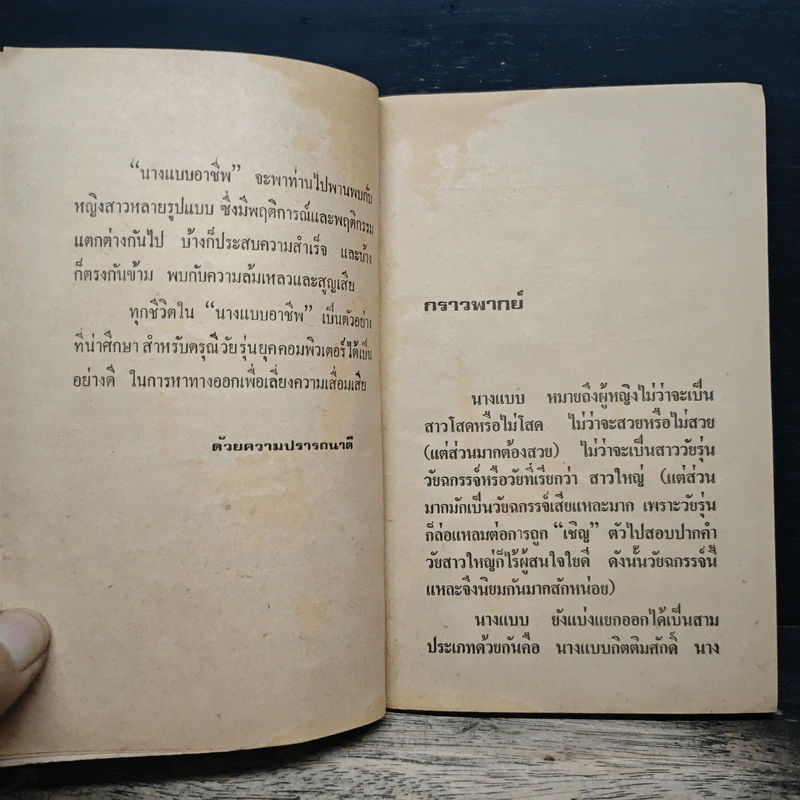 “นางแบบอาชีพ” จะพาท่านไปพานพบกับ
หญิงสาวหลายรูปแบบ ซึ่งมีพฤติการณ์และพฤติกรรม
แตกต่างกันไป บ้างก็ประสบความสำเร็จ และบ้าง
ก็ตรงกันข้าม พบกับความล้มเหลวและสูญเสีย
ทุกชีวิตใน “นางแบบอาชีพ” เป็นตัวอย่าง
ที่น่าศึกษา สำหรับดรุณีวัยรุ่นยุคคอมพิวเตอร์ได้เป็น
อย่างดี ในการหาทางออกเพื่อเลี่ยงความเสื่อมเสีย
ด้วยความปรารถนาดี
กราวพากย์
นางแบบ หมายถึงผู้หญิงไม่ว่าจะเป็น
สาวโสดหรือไม่โสด ไม่ว่าจะสวยหรือไม่สวย
(แต่ส่วนมากต้องสวย) ไม่ว่าจะเป็นสาววัยรุ่น
วัยฉกรรจ์หรือวัยที่เรียกว่า สาวใหญ่ (แต่ส่วน
มากมักเป็นวัยฉกรรจ์เสียแหละมาก เพราะวัยรุ่น
ก็ล่อแหลมต่อการถูก “เชิญ” ตัวไปสอบปากคำ
วัยสาวใหญ่ก็ไร้ผู้สนใจใยดี ดังนั้นวัยฉกรรจ์นี้
แหละจึงนิยมกันมากสักหน่อย)
นางแบบ ยังแบ่งแยกออกได้เป็นสาม
ประเภทด้วยกันคือ นางแบบกิตติมศักดิ์ นาง